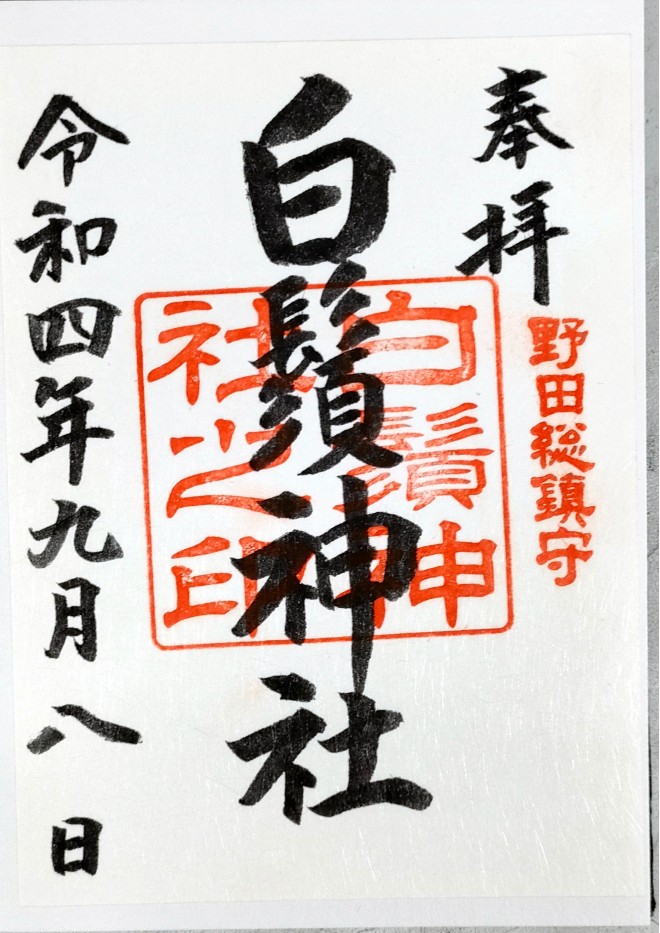 奉拝
野田総鎮守
白鬚神社
白鬚神社之印
令和四年九月八日